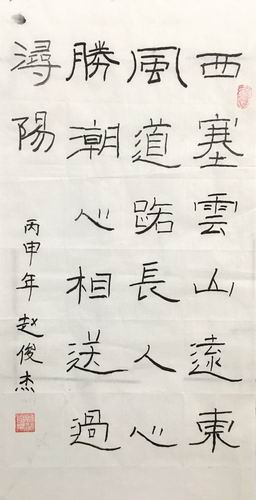 西塞雲山遠東
風道路長人心
勝潮心相送過
潯陽
丙申年赵俊杰